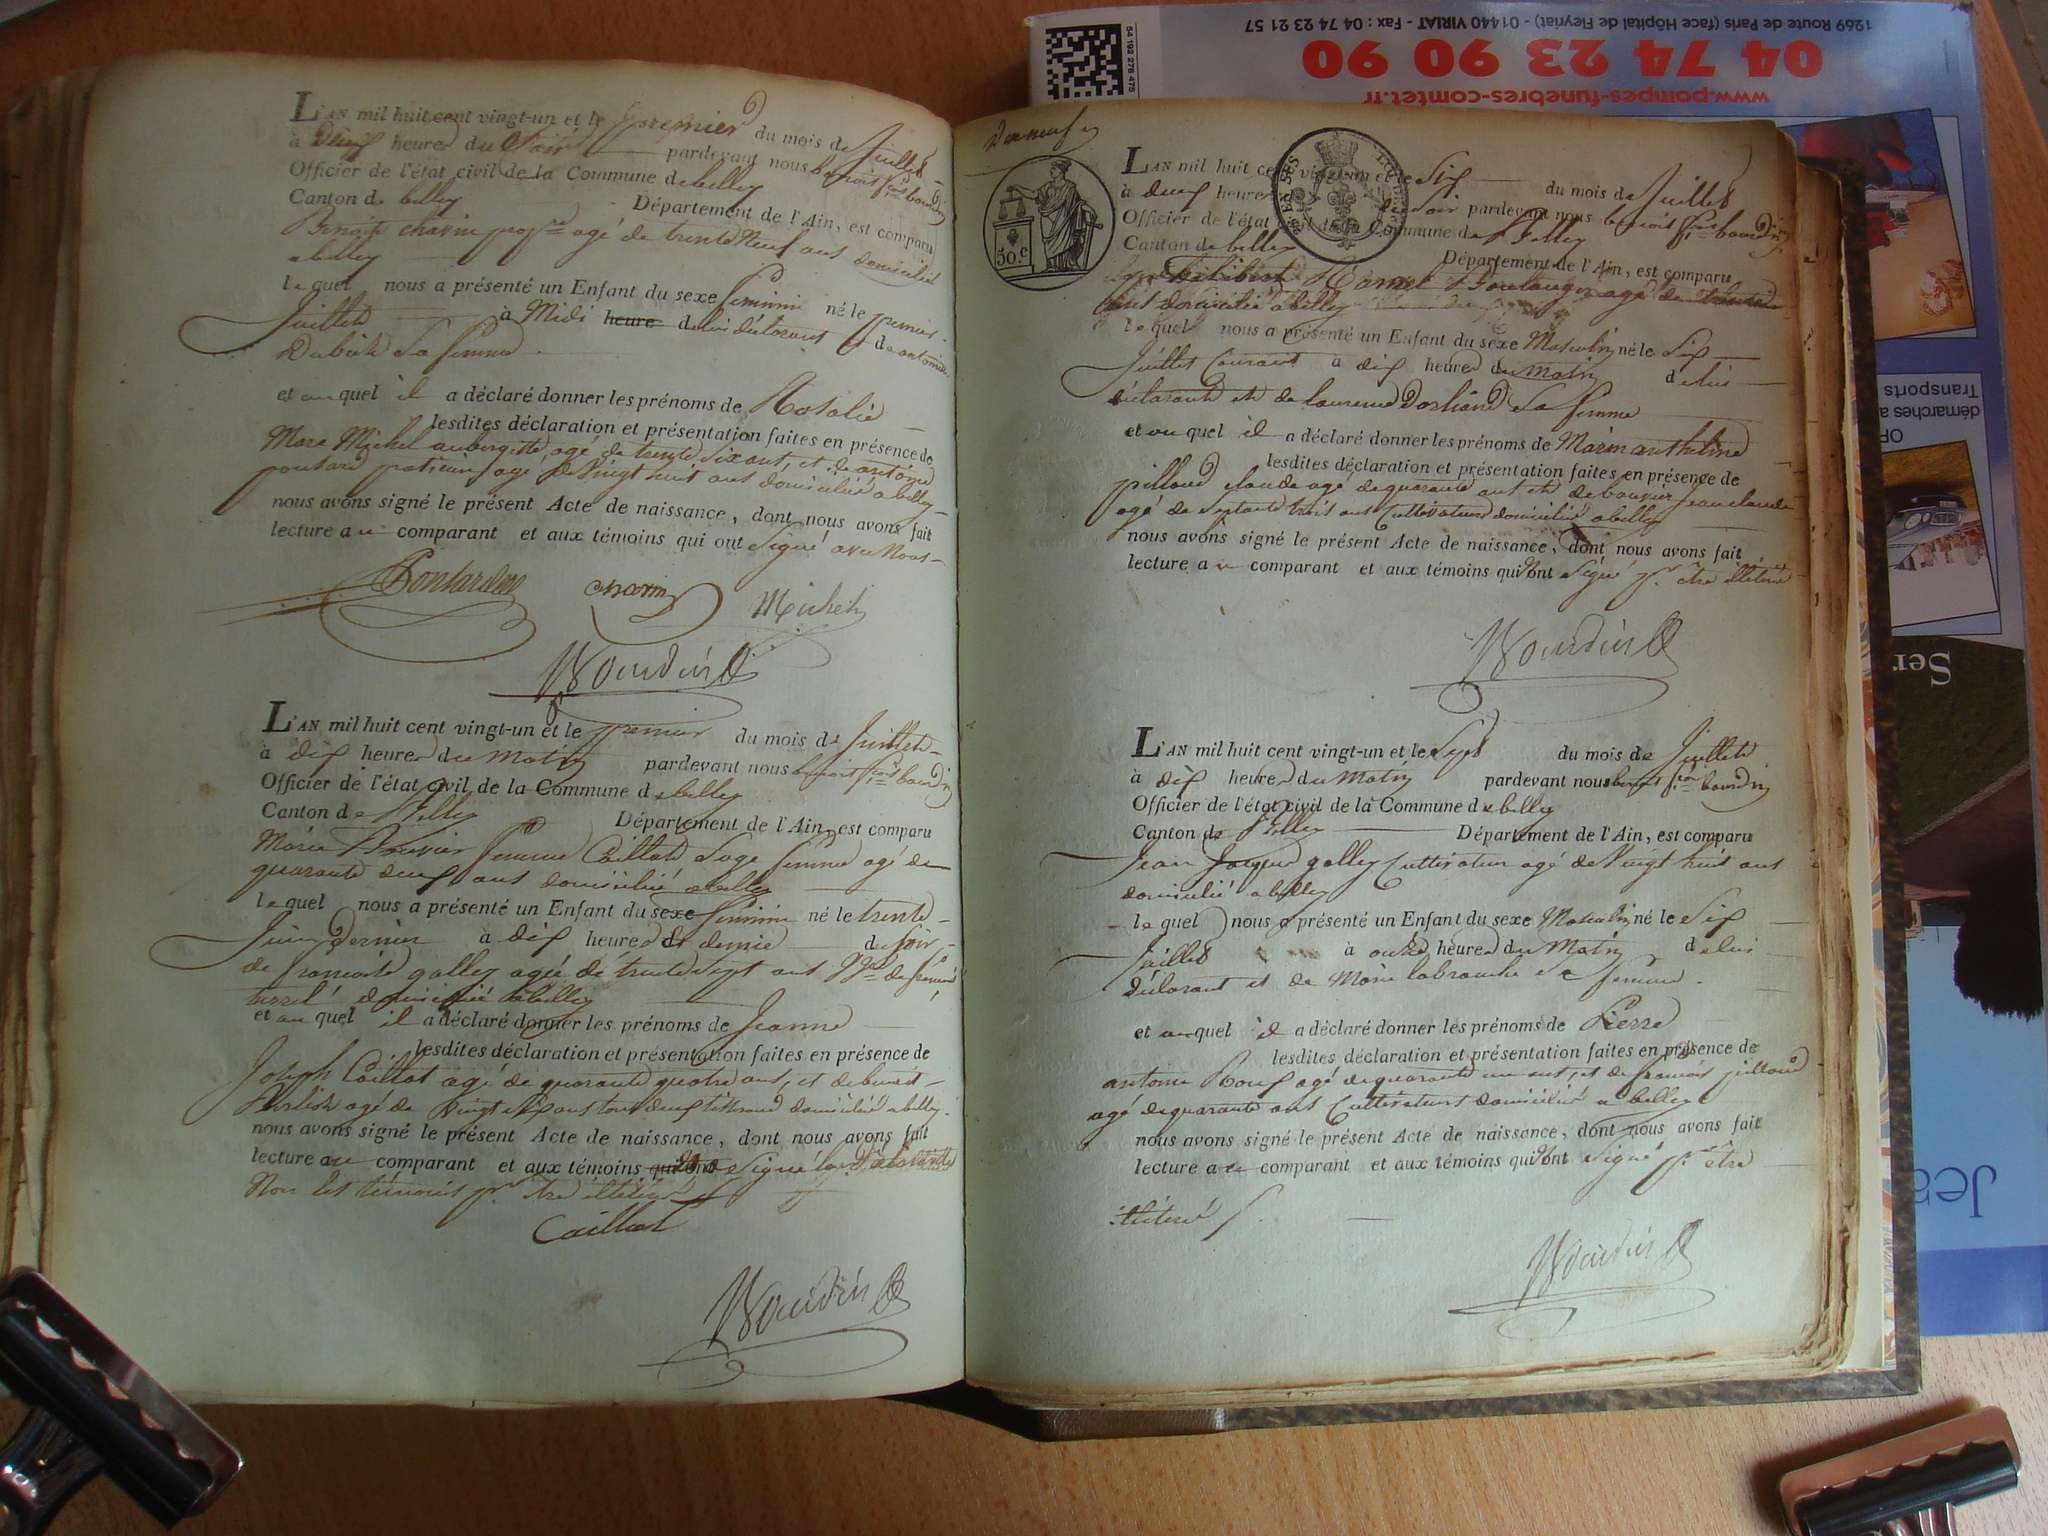 L'AN mil huit cent vingt-un et le premier du mois de Juillet
à Deux heures du Soir pardevant nous benoit fçois bourdin
Officier de l'état civil de la Commune de belley
Canton de belley Département de l'Ain, est comparu
Benoit charin age de trente Neuf ans domicilié
a belley
le quel nous a présenté un Enfant du sexe feminin né le premier
Juillet à Midi heure de lui déclarant et de antoinette
sa femme
et au quel il a déclaré donner les prénoms de Rosalie
lesdites déclaration et présentation faites en présence de
Marc Michel aubergiste, agé de trente six ans, et de antoine
pontard praticien agé de Vingt huit ans domicilié a belley
nous avons signé le présent Acte de naissance, dont nous avons fait
lecture au comparant et aux témoins qui ont Signé avec Nous
Pontard charin Michel
Bourdin
L'AN mil huit cent vingt-un et le premier du mois de Juillet
à dix heures du Matin pardevant nous benoit fçois bourdin
Officier de l'état civil de la Commune de belley
Canton de Belley Département de l'Ain, est comparu
Marie Bouvier femme Caillat Sage femme agé de
quarante deux ans domicilié a belley
le quel nous a présenté un Enfant du sexe féminin né le trente
Juin dernier à dix heures et demie du Soir
de françoise golley agée de trente Sept ans
domiciliée a belley
et au quel il a déclaré donner les prénoms de Jeanne
lesdites déclaration et présentation faites en présence de
Joseph Caillat agé de quarante quatre ans, et de benoit
agé de Vingt six ans tous deux tisserand domicilié a belley
nous avons signé le présent Acte de naissance, dont nous avons fait
lecture au comparant et aux témoins qui ont Signé la déclarante
Non les témoins pr être illitéré
Caillat
Bourdin
Dixneuf
50.c
L'AN mil huit cent vingt-un et le Six du mois de Juillet
à deux heures du Soir pardevant nous benoit fçois bourdin
Officier de l'état civil de la Commune de Belley
Canton de belley Département de l'Ain, est comparu
Philibert Hamel Boulanger agé de trente
ans domicilié a belley
le quel nous a présenté un Enfant du sexe Masculin né le Six
Juillet Courant à dix heures du Matin de lui
déclarant et de laurence sa femme
et au quel il a déclaré donner les prénoms de Marin anthelme
lesdites déclaration et présentation faites en présence de
pilloud claude agé de quarante ans et de bouvier jean claude
agé de septante trois ans Cultivateurs domicilié a belley
nous avons signé le présent Acte de naissance, dont nous avons fait
lecture au comparant et aux témoins qui n'ont signé pr être illitéré
Bourdin
L'AN mil huit cent vingt-un et le Sept du mois de Juillet
à dix heures du Matin pardevant nous benoit fçois bourdin
Officier de l'état civil de la Commune de belley
Canton de Belley Département de l'Ain, est comparu
Jean Jacques golley Cultivateur agé de Vingt huit ans
domicilié a belley
le quel nous a présenté un Enfant du sexe Masculin né le Six
Juillet à onze heures du Matin de lui
déclarant et de Marie labranche sa femme
et au quel il a déclaré donner les prénoms de Pierre
lesdites déclaration et présentation faites en présence de
antoine Roux agé de quarante un ans, et de françois pilloud
agé de quarante ans Cultivateurs domicilié a belley
nous avons signé le présent Acte de naissance, dont nous avons fait
lecture au comparant et aux témoins qui n'ont signé pr être
illitéré
Bourdin
1269 Route de Paris (face Hôpital de Fleyriat) - 01440 VIRIAT - Fax : 04 74 23 21 57
04 74 23 90 90
www.pompes-funebres-comtet.fr
54 192 278 475
démarches a
Transports
OP
Ser
Jea